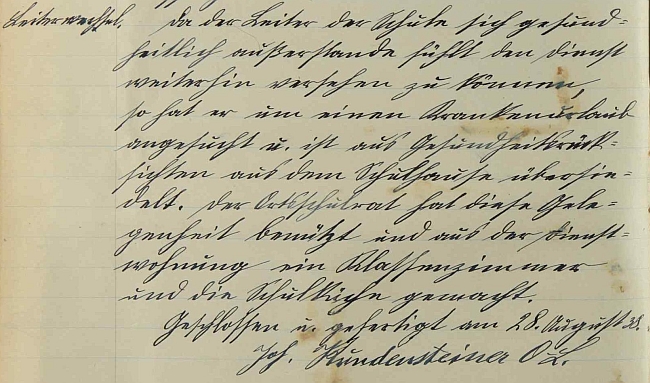 Leiterwechsel. Da der Leiter der Schule sich gesund=
heitlich außerstande fühlt den Dienst
weiterhin versehen zu können,
so hat er um einen Krankenurlaub
angesucht u. ist aus Gesundheitsrück=
sichten aus dem Schulhause übersie=
delt. Der Ortsschulrat hat diese Gele=
genheit benützt und aus der Dienst=
wohnung ein Klassenzimmer
und die Schulküche gemacht.
Geschlossen u. gefertigt am 28. August 38.
Joh. Kundensteiner O.L.